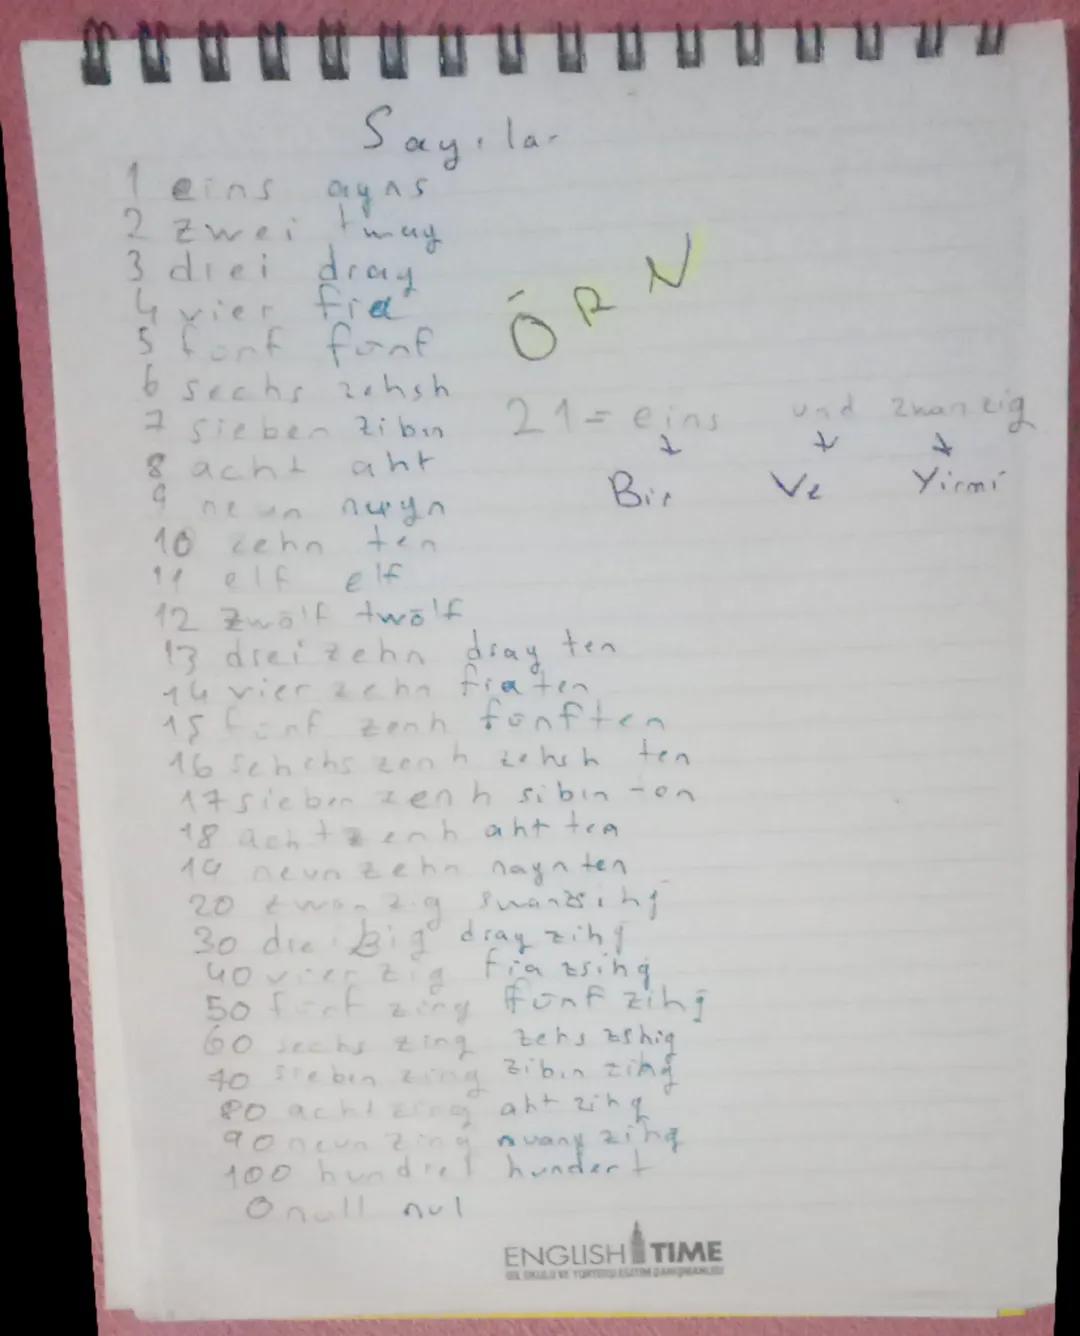 Sayılar
1 eins ayns
2 zwei tway
3 drei dray
4 vier fia
5 fünf fünf
6 sechs zehsh
7 sieben zibın
8 acht aht
9 neun nuyn
10 zehn ten
11 elf elf
12 zwölf twölf
13 dreizehn dray ten
14 vierzehn fiaten
15 fünf zenh fünften
16 sehchs zenh zehsh ten
17 sieben zenh sibın ten
18 achtzenh aht ten
19 neunzehn nayn ten
20 zwanzig
30 dreißig dray zihg
40 vierzig fia zsihg
50 fünf zing fünf zihg
60 sechs zing zehs zshig
70 sieben zing zibın zihg
80 acht zing aht zihg
90 neun zing zihg
100 hundret hundert
0 null nul
ÖRN
21 = eins und zwanzig
Bir Ve Yirmi
ENGLISH TIME
DİL OKULU VE YURTDIŞI EĞİTİM DANIŞMANLIĞI